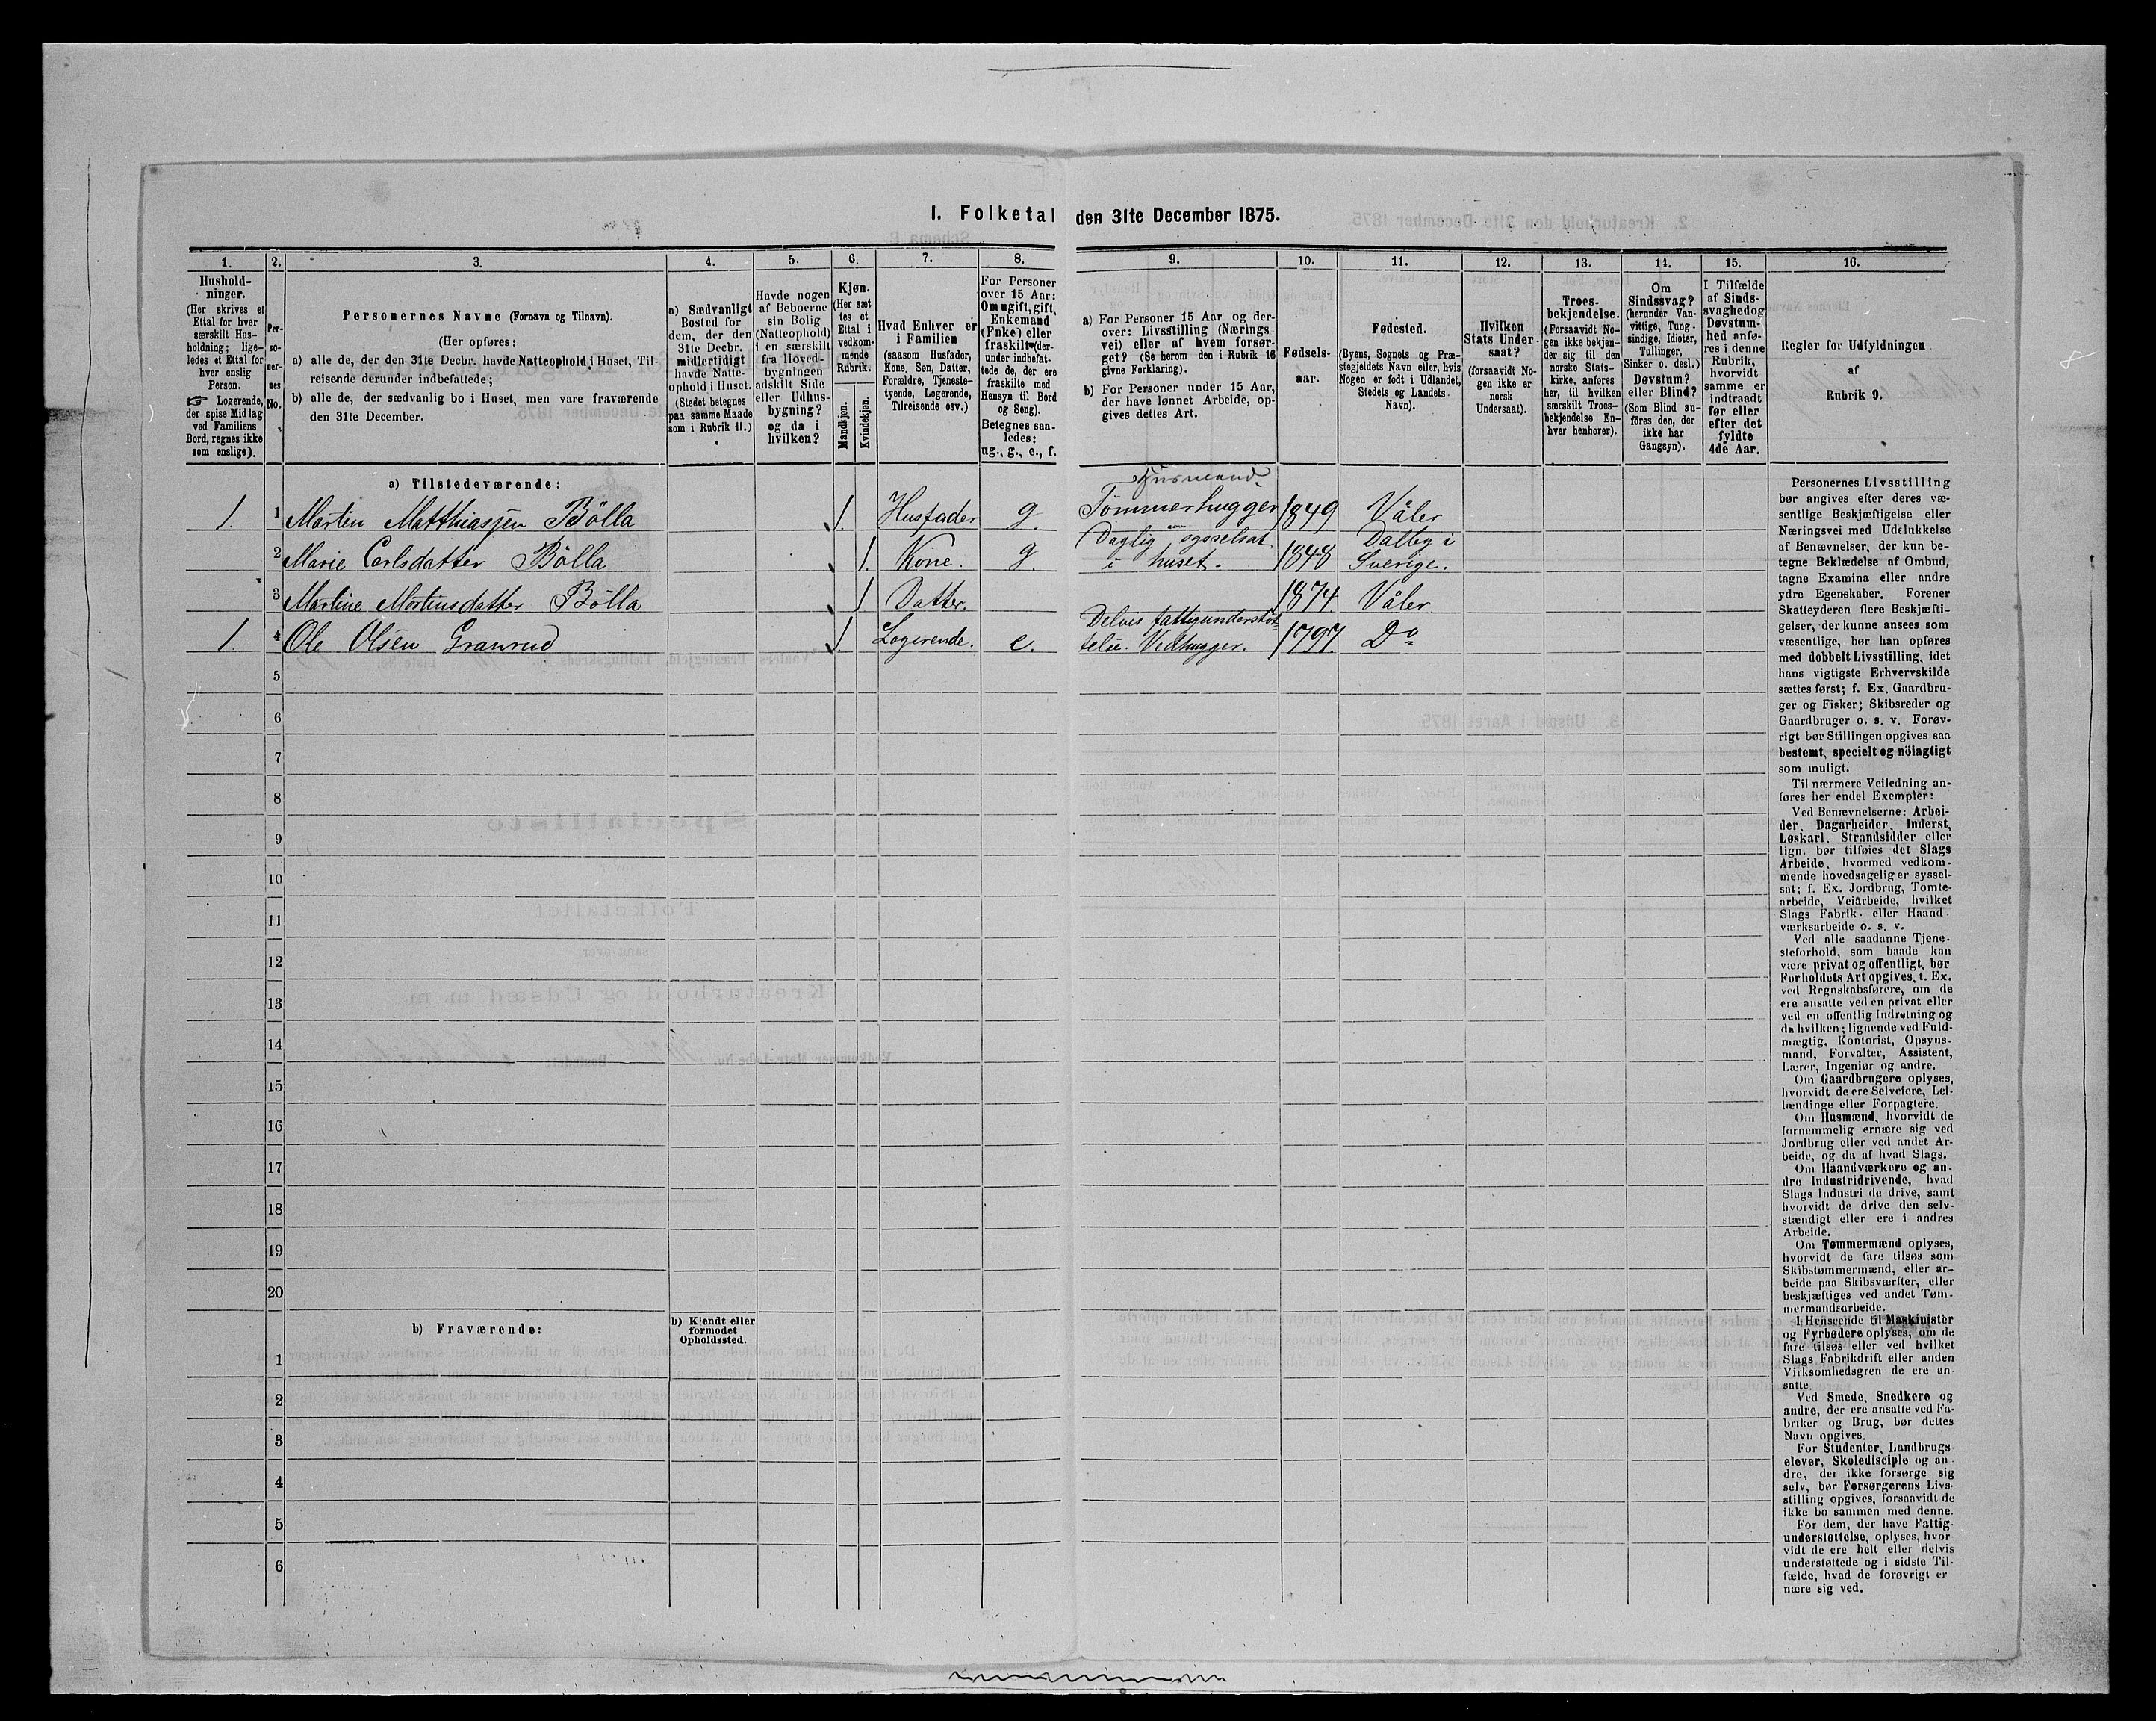 1. Folketal den 31te December 1875.
1. 2. 3. 4. 5. 6. 7. 8. 9. 10. 11. 12. 13. 14. 15. 16.
Hushold-
ninger.
(Her skrives et
Ettal for hver
særskilt Hus-
holdning; lige-
ledes et Ettal for
hver enslig
Person.
☞ Logerende,
der spise Middag
ved Familiens
Bord, regnes ikke
som enslige).
Per-
so-
ner-
nes
No.
Personernes Navne (Fornavn og Tilnavn).
(Her opføres:
a) alle de, der den 31te Decbr. havde Natteophold i Huset, Til-
reisende derunder indbefattede;
b) alle de, der sædvanlig bo i Huset, men vare fraværende
den 31te December.
a) Sædvanligt
Bosted for
dem, der den
31te Decbr.
midlertidigt
havde Natte-
ophold i Huset.
(Stedet betegnes
paa samme Maade
som i Rubrik 11.)
Havde nogen
af Beboerne
sin Bolig
(Natteophold)
i en særskilt
fra Hoved-
bygningen
adskilt Side
eller Udhus-
bygning?
og da i
hvilken?
Kjøn.
(Her sæt
tes et
Ettal i
vedkom-
mende
Rubrik.
Mandkjøn.
Kvindekjøn.
Hvad Enhver er
i Familien
(saasom Husfader,
Kone, Søn, Datter,
Forældre, Tjeneste-
tyende, Logerende,
Tilreisende osv.)
For Personer
over 15 Aar:
Om ugift, gift,
Enkemand
(Enke) eller
fraskilt (der-
under indbefat-
tede de, der ere
fraskilte med
Hensyn til Bord
og Seng).
Betegnes saa-
ledes:
ug., g., e., f.
a) For Personer 15 Aar og der-
over: Livsstilling (Nærings
vei) eller af hvem forsør-
get? (Se herom den i Rubrik 16
givne Forklaring).
b) For Personer under 15 Aar,
der have lønnet Arbeide, op-
gives dettes Art.
Fødsels-
aar.
Fødested.
(Byens, Sognets og Præ-
stegjeldets Navn eller, hvis
Nogen er født i Udlandet,
Stedets og Landets
Navn).
Hvilken
Stats Under-
saat?
(forsaavidt No-
gen ikke er
norsk
Undersaat).
Troes-
bekjendelse.
(Forsaavidt No-
gen ikke bekjen-
der sig til den
norske Stats-
kirke, anføres
her, til hvilken
særskilt Troes-
bekjendelse En-
hver henhører).
Om
Sindssvag?
(herunder Van-
vittige, Tung-
sindige, Idioter,
Tullinger,
Sinker o. desl.)
Døvstum?
eller Blind?
(Som Blind an-
føres den, der
ikke har
Gangsyn).
I Tilfælde
af Sinds-
svaghed og
Døvstum-
hed anfø-
res i denne
Rubrik,
hvorvidt
samme er
indtraadt
før eller
efter det
fyldte
4de Aar.
Regler for Udfyldningen
af
Rubrik 9.
a) Tilstedeværende:
Husmand.
1. 1 Marten Matthiasjen Bölla 1. Husfader g. Tömmerhugger 1849 Våler
2 Marie Carlsdatter Bölla 1. Kone. g. Daglig sysselsat i huset. 1848 Dalby i Sverige.
3 Martine Mortinsdatter Bölla 1 Datter. 1874 Våler
1. 4 Ole Olsen Granrud 1. Logerende. e. Delvis fattigunderstöt- telse. Vedhugger. 1797. Do
5
6
7
8
9
10
11
12
13
14
15
16
17
18
19
20
b) Fraværende:
b) Kjendt eller
formodet
Opholdssted.
1
2
3
4
5
6
Personernes Livsstilling
bør angives efter deres væ-
sentlige Beskjæftigelse eller
Næringsvei med Udelukkelse
af Benævnelser, der kun be-
tegne Beklædelse af Ombud,
tagne Examina eller andre
ydre Egenskaber. Forener
Skatteyderen flere Beskjæfti-
gelser, der kunne ansees som
væsentlige, bør han opføres
med dobbelt Livsstilling, idet
hans vigtigste Erhvervskilde
sættes først; f. Ex. Gaardbru-
ger og Fisker; Skibsreder og
Gaardbruger o. s. v. Forøv-
rigt bør Stillingen opgives saa
bestemt, specielt og nöiagtigt
som muligt.
Til nærmere Veiledning an-
føres her endel Exempler:
Ved Benævnelserne: Arbei-
der, Dagarbeider, Inderst,
Løskarl, Strandsidder eller
lign. bør tilføies det Slags
Arbeide, hvormed vedkom-
mende hovedsagelig er syssel-
sat; f. Ex. Jordbrug, Tomte-
arbeide, Veiarbeide, hvilket
Slags Fabrik- eller Haand-
værksarbeide o. s. v.
Ved alle saadanne Tjene-
steforhold, som baade kan
være privat og offentligt, bør
Forholdets Art opgives, t. Ex.
ved Regnskabsførere, om de
ere ansatte ved en privat eller
ved en offentlig Indretning og
da hvilken; lignende ved Fuld-
mægtig, Kontorist, Opsyns-
mand, Forvalter, Assistent,
Lærer, Ingeniør og andre.
Om Gaardbrugere oplyses,
hvorvidt de ere Selveiere, Lei-
lændinge eller Forpagtere.
Om Husmænd, hvorvidt de
fornemmelig ernære sig ved
Jordbrug eller ved andet Ar-
beide, og da af hvad Slags.
Om Haandværkere og an-
dre Industridrivende, hvad
Slags Industri de drive, samt
hvorvidt de drive den selv-
stændigt eller ere i andres
Arbeide.
Om Tømmermænd oplyses,
hvorvidt de fare tilsøs som
Skibstømmermænd, eller ar-
beide paa Skibsværfter, eller
beskjæftiges ved andet Tøm-
mermandsarbeide.
I Henseende til Maskinister
og Fyrbødere oplyses, om de
fare tilsøs eller ved hvilket
Slags Fabrikdrift eller anden
Virksomhedsgren de ere an-
satte.
Ved Smede, Snedkere og
andre, der ere ansatte ved Fa-
briker og Brug, bør dettes
Navn opgives.
For Studenter, Landbrugs-
elever, Skoledisciple og an-
dre, der ikke forsørge sig
selv, bør Forsørgerens Livs-
stilling opgives, forsaavidt de
ikke bo sammen med denne.
For dem, der have Fattig-
understøttelse, oplyses, hvor-
vidt de ere helt eller delvis
understøttede og i sidste Til-
fælde, hvad de forøvrigt er-
nære sig ved.